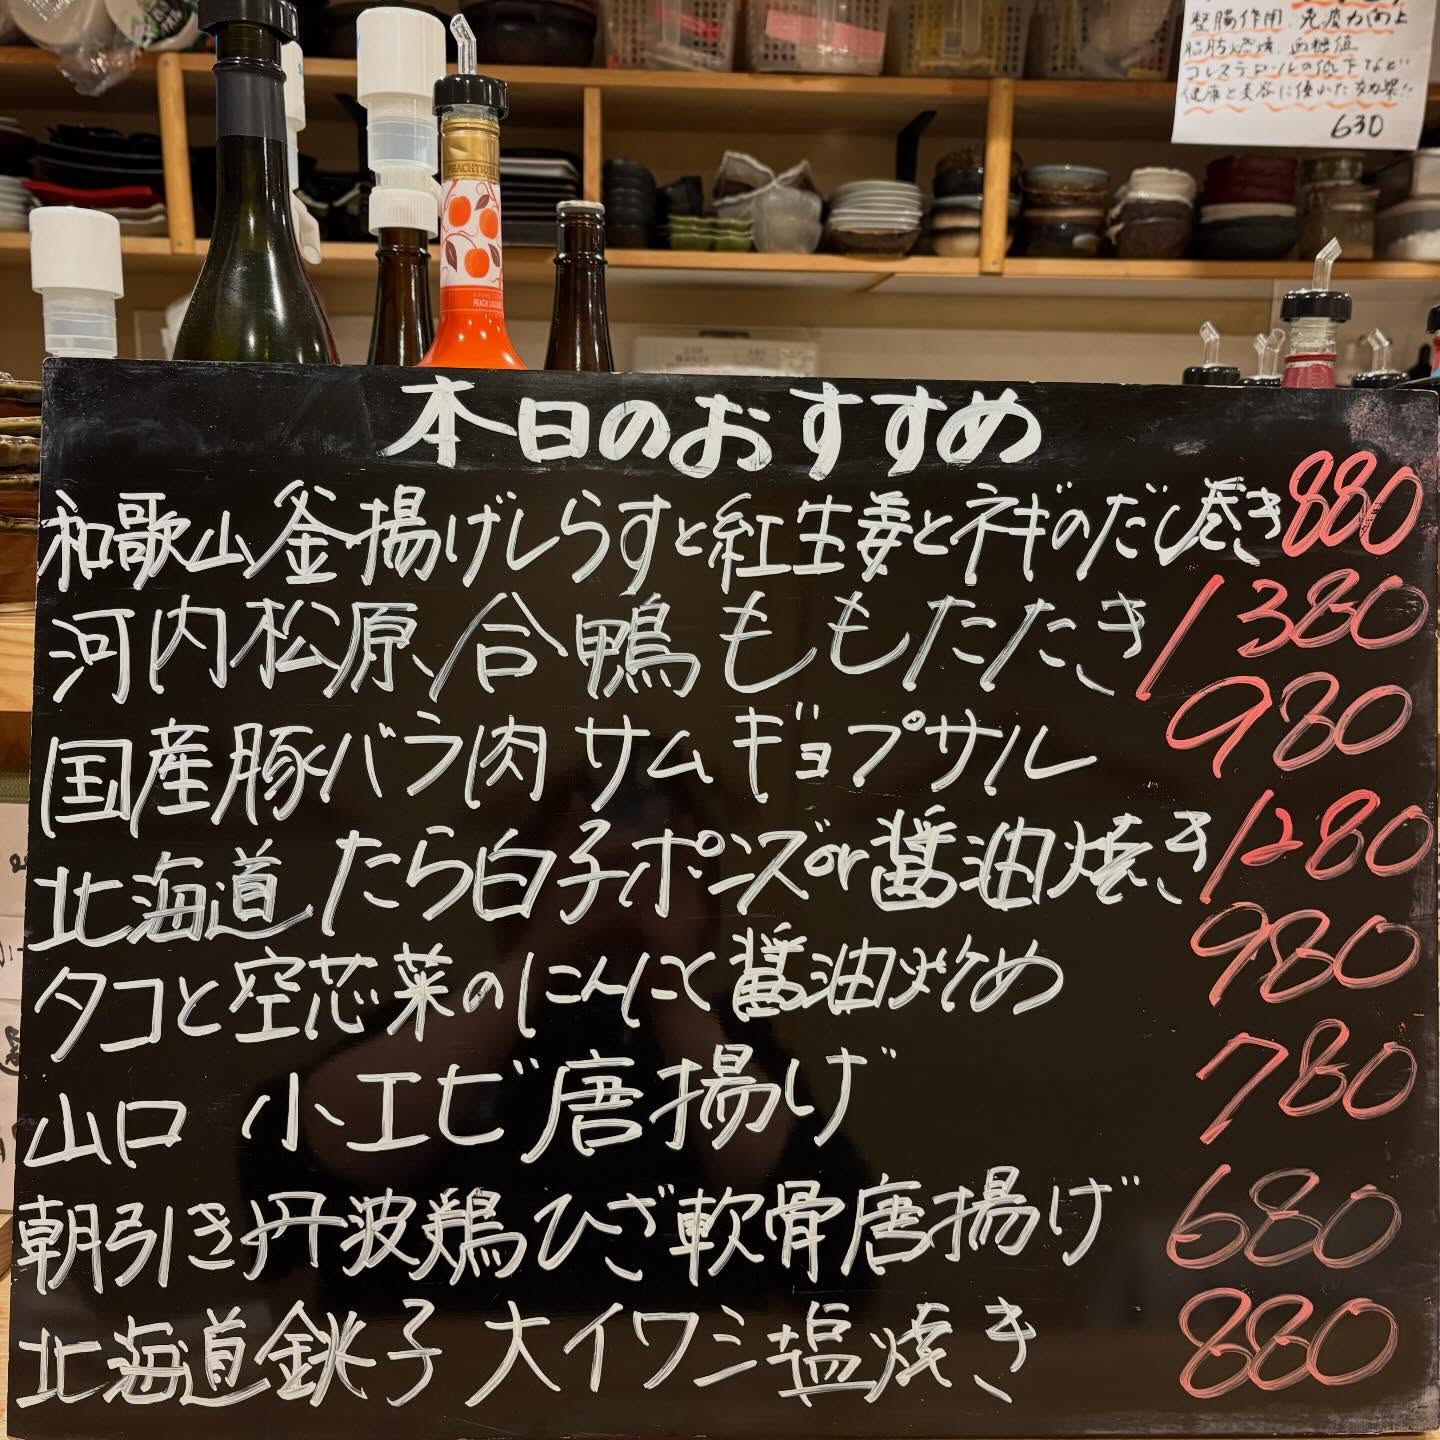 整腸作用、免疫力向上
脂肪燃焼、血糖値
コレステロールの低下など
健康と美容に優れた効果!!
630
PEACHTREE
本日のおすすめ
和歌山釜揚げしらすと紅生姜とネギのだし巻き 880
河内松原、合鴨ももたたき 1380
国産豚バラ肉サムギョプサル 980
北海道たら白子ポンズor醤油焼き 1280
タコと空芯菜のにんにく醤油炒め 980
山口 小エビ唐揚げ 780
朝引き丹波鶏ひざ軟骨唐揚げ 680
北海道銚子 大イワシ塩焼き 880